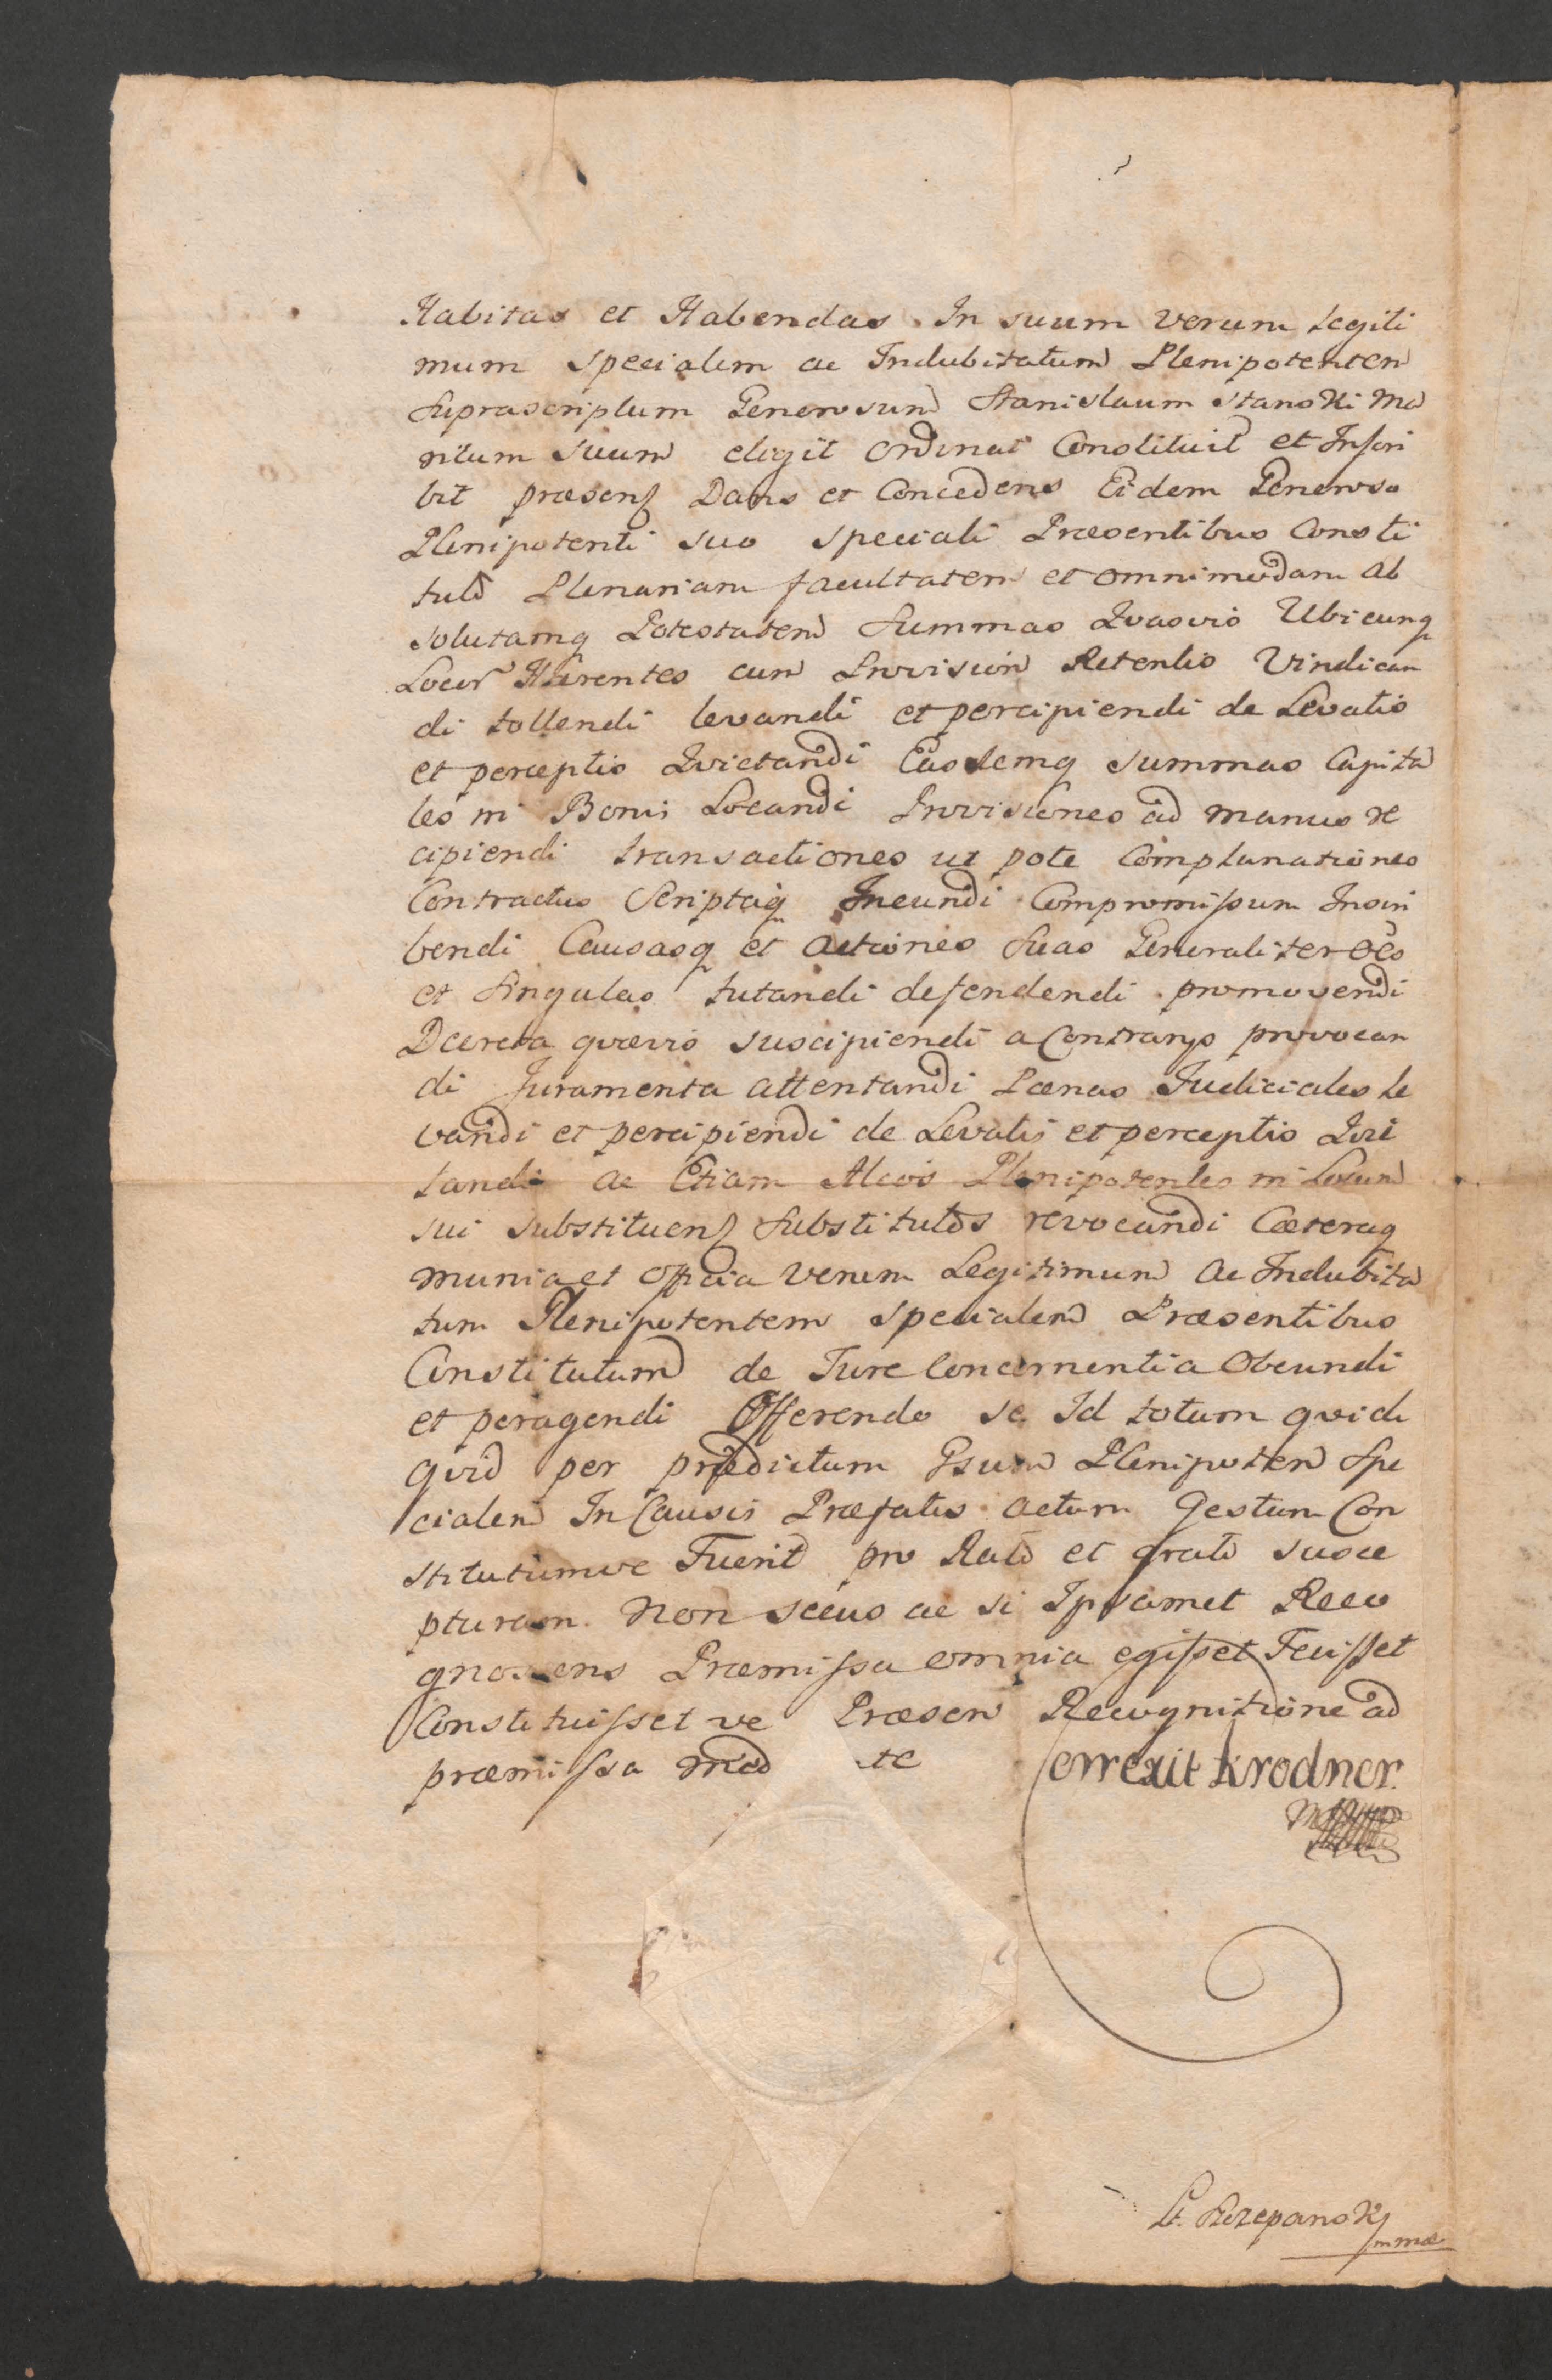 Habitas et Habendas. In suum verum Legiti
mum specialem ac Indubitatum Plenipotenten
Suprascriptum Generosum Stanislaum Stanski Ma
ritum suum elegit ordinat Constituit et Inscri
bit præsen Dans et Concedens Eidem Generoso
Plenipotenti suo speciali Præsentibus Consti
tuto Plenariam facultatem et omnimodam ab
solutamq Potestatem Summas Qvasvis Ubicunq
Locor Hærentes cum Provision Retentis Vindican
di tollendi levandi et percipiendi de Levatis
et perceptis Qvictandi Easdemq summas Capita
les in Bonis Locandi Provisiones ad manus re
cipiendi transactiones ut pote Complanationes
Contractus Scriptaq Ineundi Compromissum Inscri
bendi Causasq et actiones suas Generaliter oes
et singulas tutandi defendendi promovendi
Decreta qvævis suscipiendi a Contrarys provocan
di Juramenta attentandi Pœnas Judiciales le
vandi et percipiendi de Levatis et perceptis Qvie
tandi ac Etiam Aleos Plenipotentes in Locum
sui substituen substitutos revocandi Cæteraq
munia et officia verum Legitimum ac Indubita
tum Plenipotentem specialem Præsentibus
Constitutum de Jure Concernentia Obeundi
et peragendi Offerendo se Id totum qvid
qvid per prædictum Gsum Plenipoten Spe
cialem In Causis Præfatis actum Gestum Con
stitutumve Fuerit pro Rato et grato susce
pturam. Non secus ac si Ipsamet Reco
gnoscens Præmissa omnia egisset Fecisset
Constituisset ve Præsen Recognitione ad
præmissa med te Correxit Krodner.
St. Szczepanski
mma